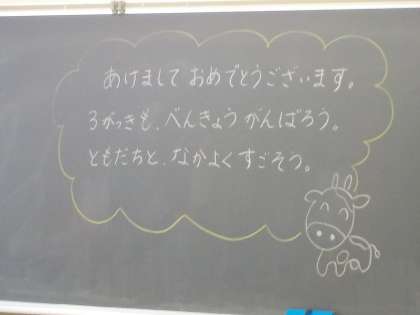 あけまして おめでとうございます。
3がっきも、べんきょうがんばろう。
ともだちと、なかよくすごそう。